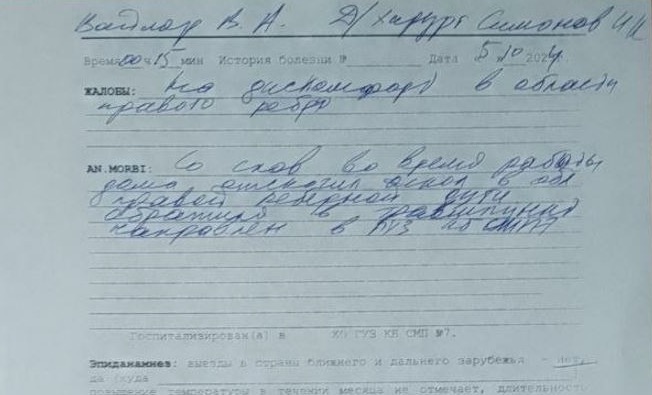 В. А. Д/хирург Симонов И И
Время 00 ч 15 мин История болезни № Дата 5.10 2024
ЖАЛОБЫ: На дискомфорт в области
правого ребра
AN.MORBI: Со слов во время работы
дома отскочил оскол в обл
правой реберной дуги
обратился в травмпункт
направлен в ГУЗ
Госпитализирован(а) в ХО ГУЗ КБ СМП №7.
Эпиданамнез: выезды в страны ближнего и дальнего зарубежья - нет,
да (куда
повышение температуры в течении месяца не отмечает, длительность